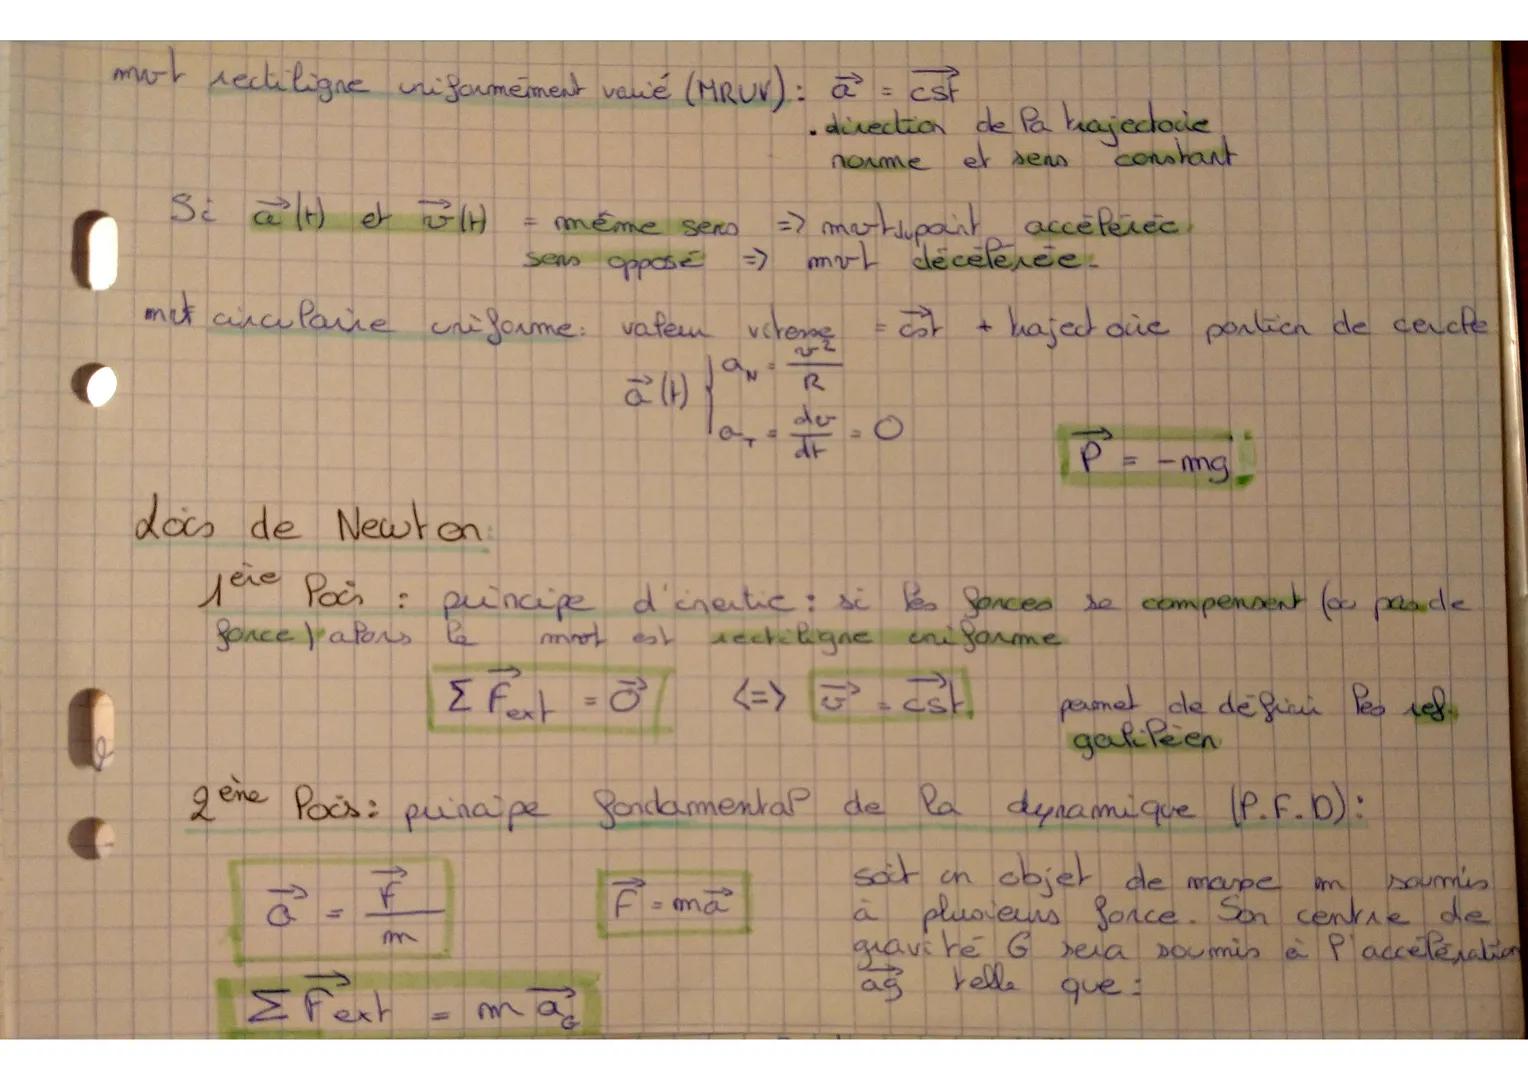 mvt rectiligne uniformément varié (MRUV) : a⃗ = cst⃗
. direction de la trajectoire
norme et sens constant
Si a⃗(t) et v⃗(t) = même sens => mvt point accélérée
sens opposé => mvt décélérée.
mvt circulaire uniforme : valeur vitesse = cst⃗ + trajectoire portion de cercle
a⃗(t) { a_N = v²/R
a_T = dv/dt = 0
P⃗ = -mg j⃗
Lois de Newton :
1ère lois : principe d'inertie : si les forces se compensent (ou pas de
force) alors le mvt est rectiligne uniforme
Σ F⃗ext = 0⃗ <=> v⃗ = cst⃗
permet de définir les ref.
galiléen
2ème lois : principe fondamental de la dynamique (P.F.D) :
a⃗ = F⃗/m
F⃗ = ma⃗
soit un objet de masse m soumis
à plusieurs force. Son centre de
gravité G sera soumis à l'accélération
a⃗g telle que :
Σ F⃗ext = m a⃗_G